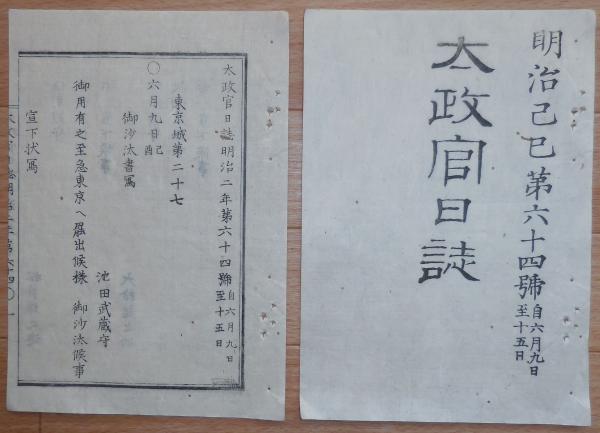 明治己巳第六十四號自六月九日至十五日
太政官日誌
太政官日誌明治二年第六十四號自六月九日至十五日
東京城第二十七
〇六月九日己酉
御沙汰書寫
池田武蔵守
御用有之至急東京へ罷出候様 御沙汰候事
宣下状寫